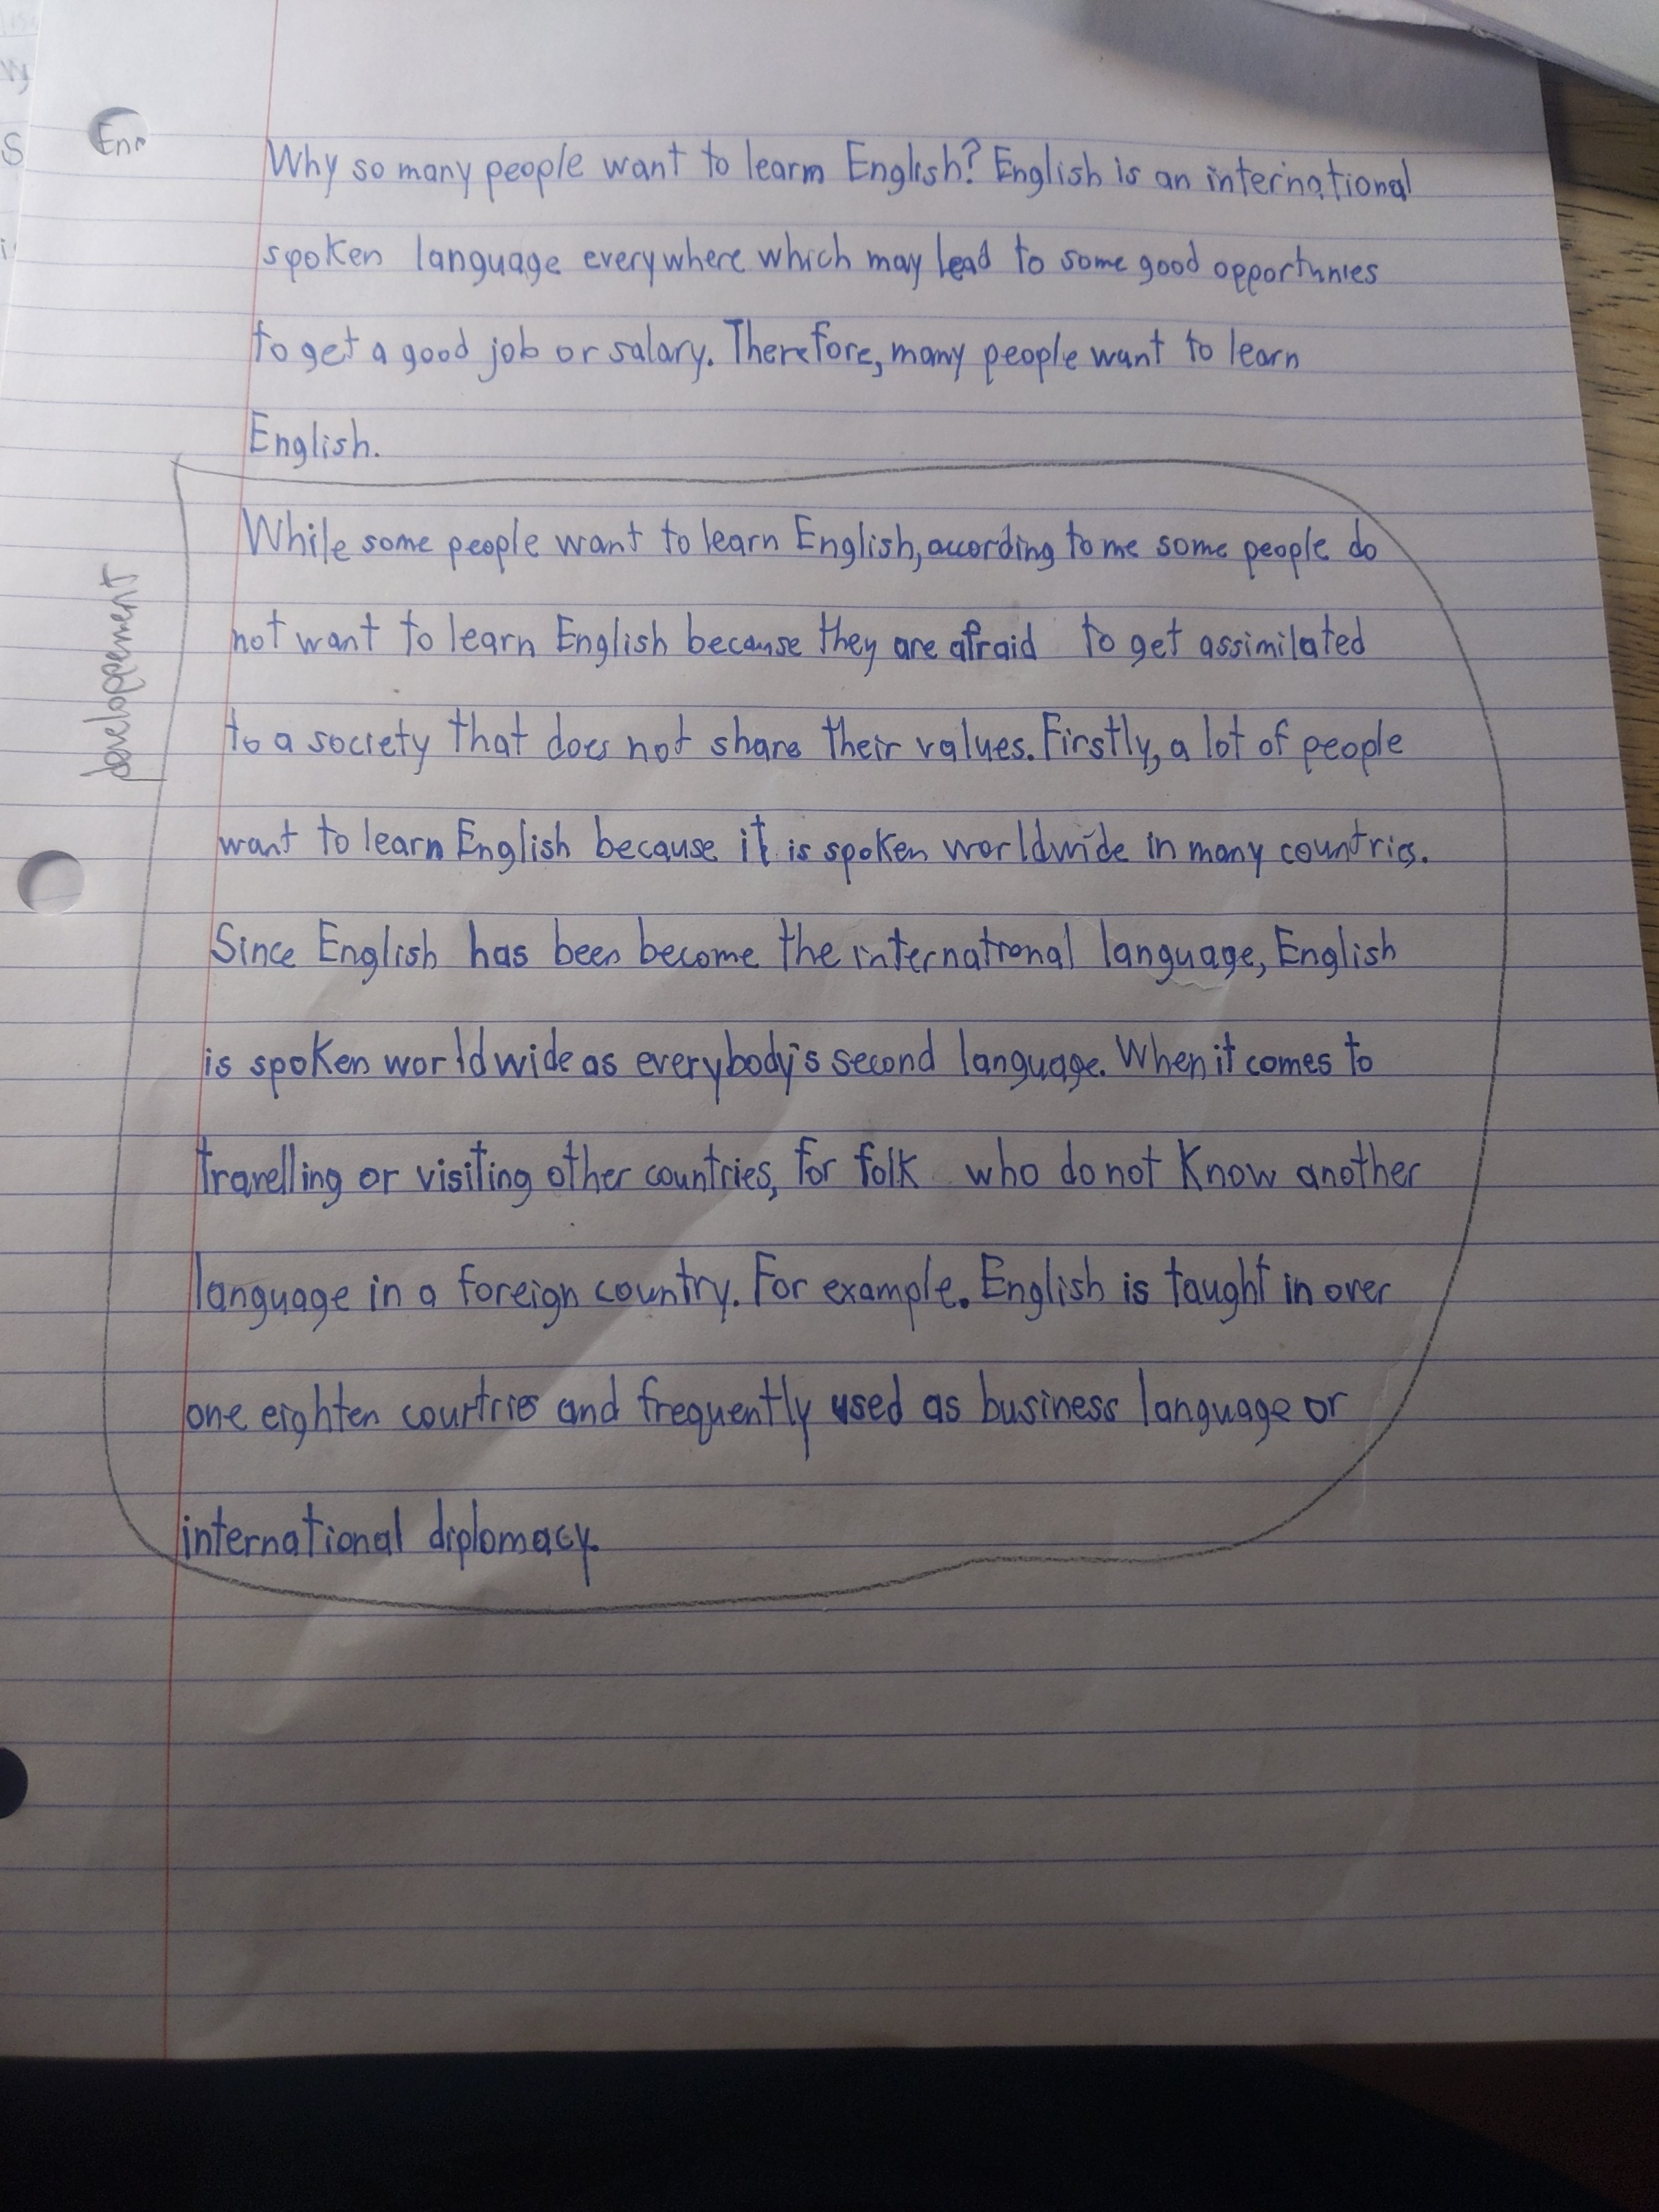 Why so many people want to learm English? English is an international
spoken language everywhere which may lead to some good opportunies
to get a good job or salary. Therefore, many people want to learn
English.
While some people want to learn English, according to me some people do
not want to learn English because they are afraid to get assimilated
to a society that does not share their values. Firstly, a lot of people
want to learn English because it is spoken worldwide in many countries.
Since English has been become the international language, English
is spoken worldwide as everybody's second language. When it comes to
travelling or visiting other countries, for folk who do not know another
language in a foreign country. For example. English is taught in over
one eighten courtries and frequently used as business language or
international diplomacy.
developpement